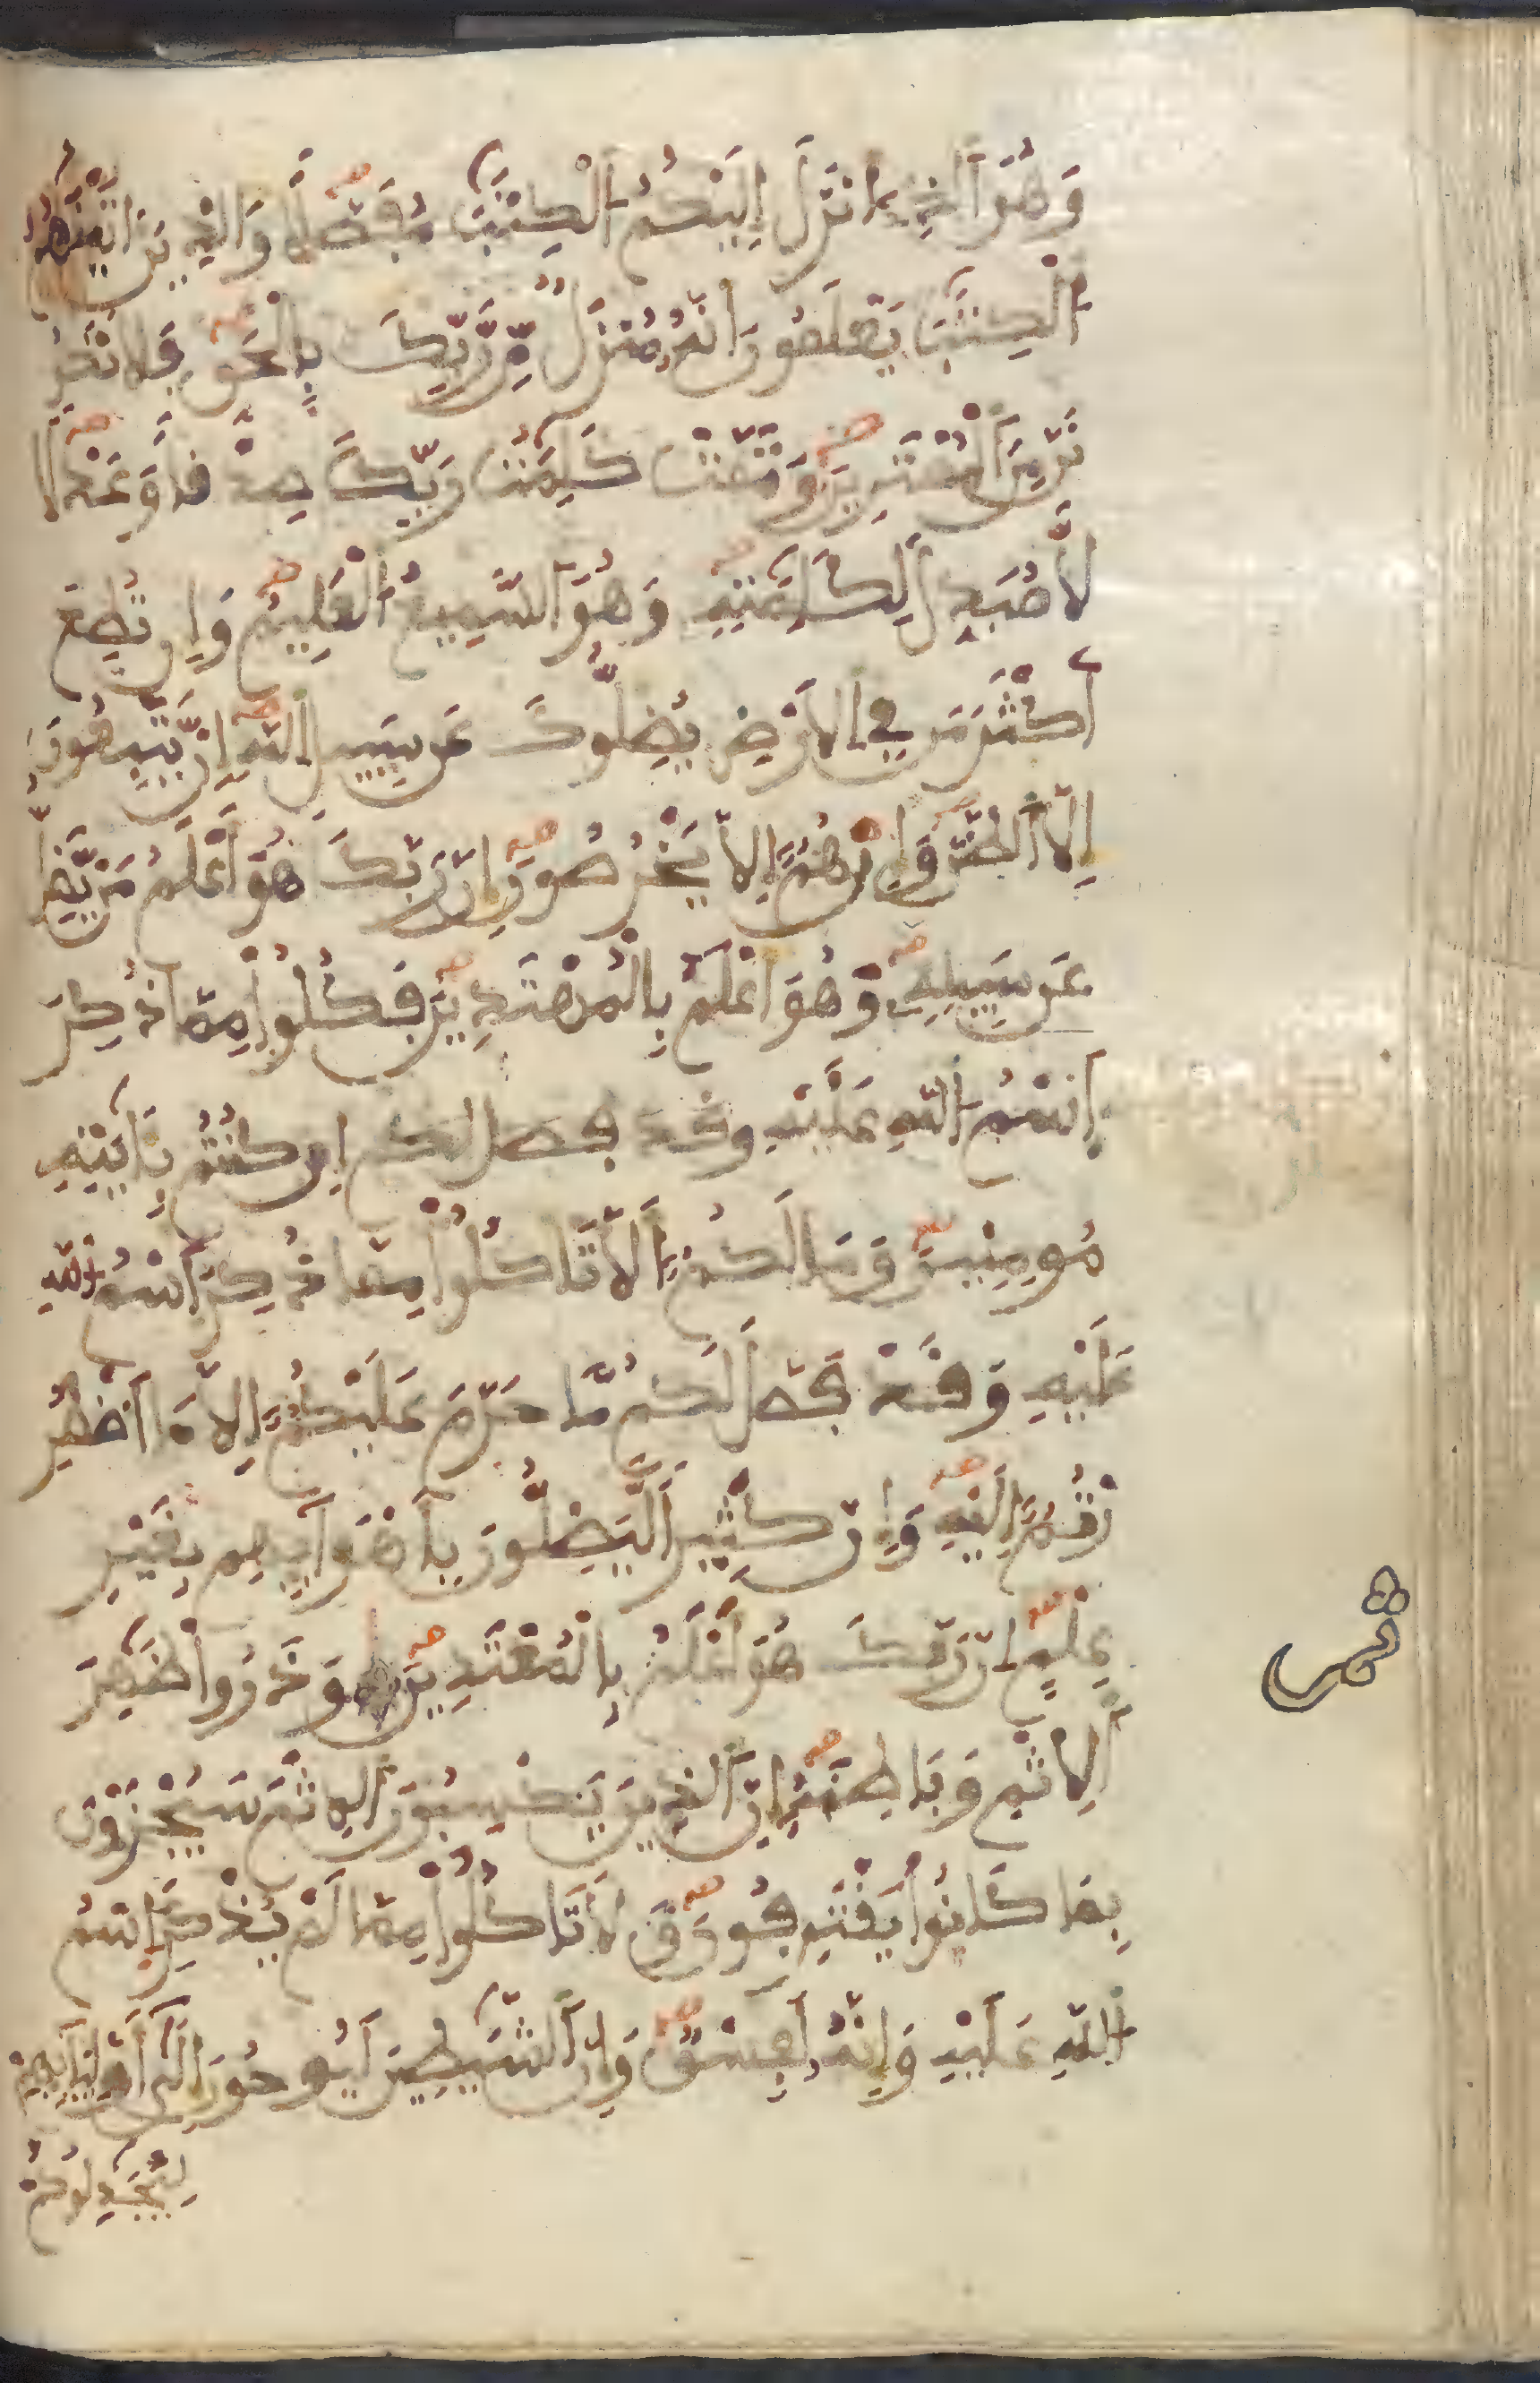 وَهُوَ ٱلذِےٓ أَنزَلَ إِلَيْكُمُ ٱلْكِتَٰبَ مُفَصَّلاً وَالذِينَ ءَاتَيْنَٰهُمُ
ٱلْكِتَٰبَ يَعْلَمُونَ أَنَّهُۥ مُنزَلٌ مِّن رَّبِّكَ بِالْحَقِّ فَلَا تَكُو
نَنَّ مِنَ ٱلْمُمْتَرِينَ وَتَمَّتْ كَلِمَٰتُ رَبِّكَ صِدْقاً وَعَدْلًا
لَّا مُبَدِّلَ لِكَلِمَٰتِهِۦ وَهُوَ ٱلسَّمِيعُ ٱلْعَلِيمُ وَإِن تُطِعْ
أَكْثَرَ مَن فِي ٱلَارْضِ يُضِلُّوكَ عَن سَبِيلِ ٱللَّهِ إِنْ يَّتَّبِعُونَ
إِلَّا ٱلظَّنَّ وَإِنْ هُمُۥٓ إِلَّا يَخْرُصُونَ إِنَّ رَبَّكَ هُوَ أَعْلَمُ مَنْ يَّضِلُّ
عَن سَبِيلِهِۦ وَهُوَ أَعْلَمُ بِالْمُهْتَدِينَ فَكُلُوا۟ مِمَّا ذُكِرَ
اِسْمُ ٱللَّهِ عَلَيْهِ وقد فصل لكم إِن كُنتُم بِـَٔايَٰتِهِۦ
مُومِنِينَ وَمَا لَكُمُۥٓ أَلَّا تَاكُلُوا۟ مِمَّا ذُكِرَ ٱسْمُ ٱللَّهِ
عَلَيْهِ وَقَدْ فَصَّلَ لَكُم مَّا حَرَّمَ عَلَيْكُمُۥٓ إِلَّا مَا ٱضْطُرِ
رْتُمُۥٓ إِلَيْهِ وَإِنَّ كَثِيراً لَّيَضِلُّونَ بِأَهْوَآئِهِم بِغَيْرِ
عِلْمٍ إِنَّ رَبَّكَ هُوَ أَعْلَمُ بِالْمُعْتَدِينَ وَذَرُوا۟ ظَٰهِرَ
ٱلِاثْمِ وَبَاطِنَهُۥٓ إِنَّ ٱلذِينَ يَكْسِبُونَ ٱلِاثْمَ سَيُجْزَوْنَ
بِمَا كَانُوا۟ يَقْتَرِفُونَ وَلَا تَاكُلُوا۟ مِمَّا لَمْ يُذْكَرِ ٱسْمُ
ٱللَّهِ عَلَيْهِ وَإِنَّهُۥ لَفِسْقٌ وَإِنَّ ٱلشَّيَٰطِينَ لَيُوحُونَ إِلَىٰٓ أَوْلِيَآئِهِمْ
لِيُجَٰدِلُوكُمْ